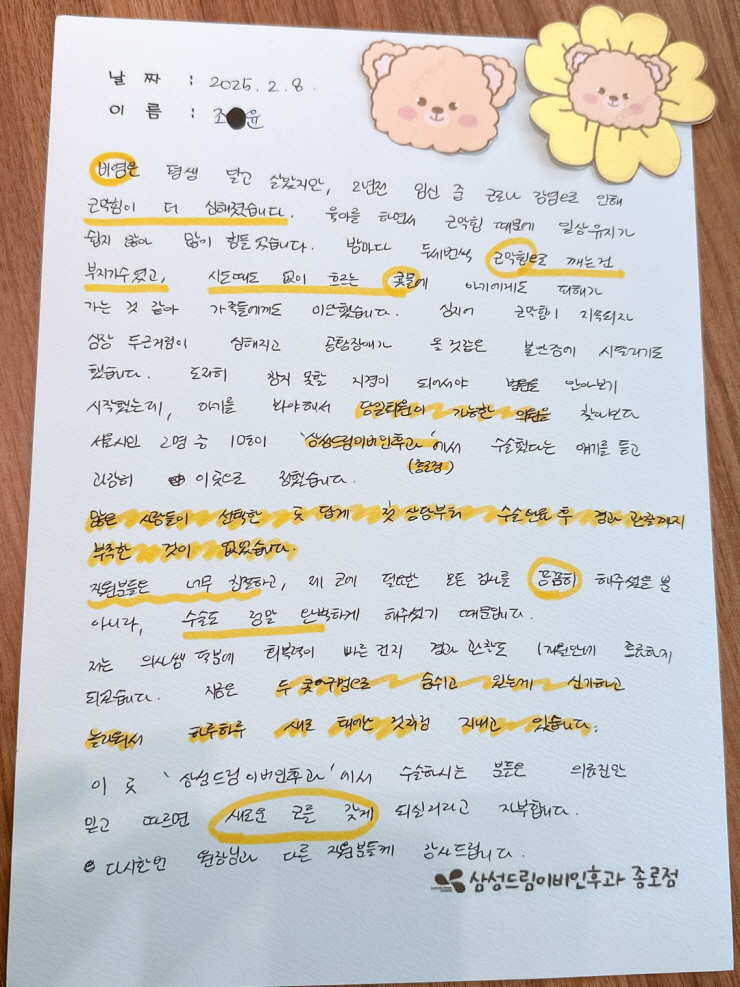 날 짜 : 2025. 2. 8.
이 름 : 조 윤
비염은 평생 달고 살았지만, 2년전 임신 중 코로나 감염으로 인해
코막힘이 더 심해졌습니다. 육아를 하면서 코막힘 때문에 일상유지가
쉽지 않아 많이 힘들었습니다. 밤마다 두세번씩 코막힘으로 깨는건
부지기수였고, 시도때도 없이 흐르는 콧물에 아기에게도 피해가
가는 것 같아 가족들에게도 미안했습니다. 심지어 코막힘이 지속되자
심장 두근거림이 심해지고 공황장애가 올 것같은 불안증에 시달리기도
했습니다. 도저히 참지 못할 지경이 되어서야 병원을 알아보기
시작했는데, 아기를 봐야해서 당일퇴원이 가능한 의원을 찾아보다
서로시인 2명 중 10호이 '삼성드림이비인후과'에서 수술했다는 얘기를 듣고
(종로점)
과감히 이곳으로 정했습니다.
많은 사람들이 선택한 곳 답게 첫 상담부터 수술완료 후 경과 관찰까지
부족한 것이 없었습니다.
직원분들은 너무 친절하고, 제 코에 필요한 모든 검사를 꼼꼼히 해주셨을 뿐
아니라, 수술도 정말 완벽하게 해주셨기 때문입니다.
저는 의사쌤 덕분에 회복력이 빠른 건지 경과 관찰도 1개월만에 종료하게
되었습니다. 지금은 두 콧구멍으로 숨쉬고 있는게 신기하고
놀라워서 하루하루 새로 태어난 것처럼 지내고 있습니다.
이 곳 '삼성드림이비인후과'에서 수술하시는 분들은 의료진만
믿고 따르면 새로운 코를 갖게 되실거라고 자부합니다.
다시한번 원장님과 다른 직원분들께 감사드립니다.
삼성드림이비인후과 종로점